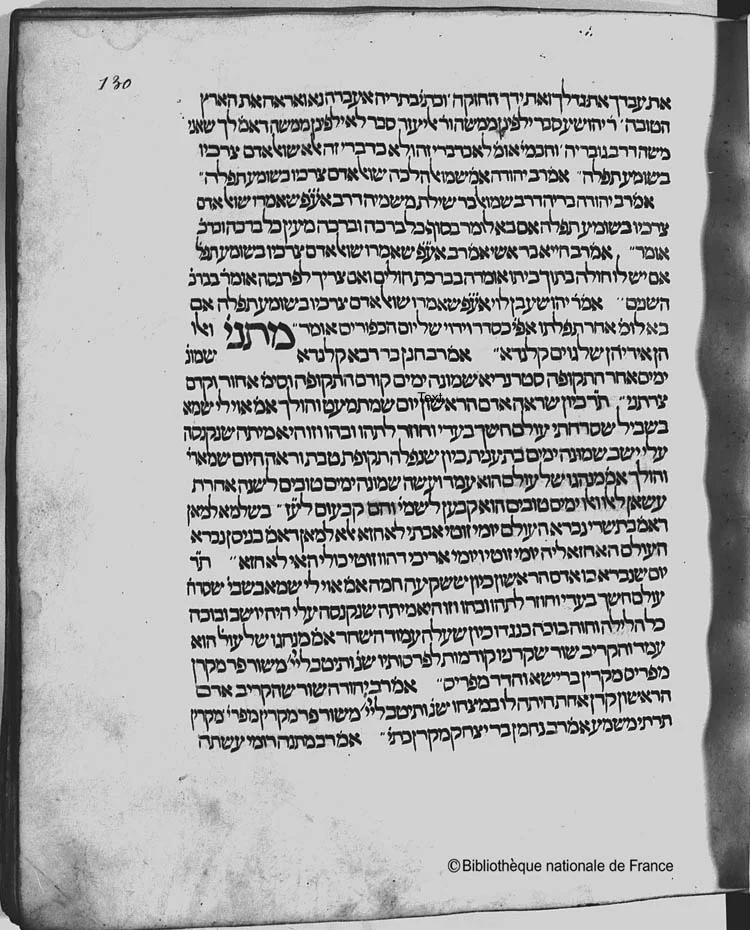 130
את עבדך את גדלך ואת ידך החזקה וכתי בתריה אעברה נא ואראה את הארץ
הטובה ר יהושע סבר ילפינן ממשה ור אליעזר סבר לא ילפינן ממשה דאמ לך שאני
משה דרב גובריה וחכמי אומ לא כדברי זה ולא כדברי זה אלא שואל אדם צרכיו
בשומע תפלה אמ רב יהודה אמ שמוא הלכה שוא אדם צרכיו בשומע תפלה
אמ רב יהודה בריה דרב שמוא בר שילת משמיה דרב אע״פ שאמרו שוא אדם
צרכיו בשומע תפלה אם בא לומר בסוף כל ברכה וברכה מעין כל ברכה וברכ
אומר אמ רב חייא בר אשי אמ רב אע״פ שאמרו שוא אדם צרכיו בשומע תפל
אם יש לו חולה בתוך ביתו אומרה בברכת חולים ואם צריך לפרנסה אומר בברכ
השנים אמ ר יהושע בן לוי אע״פ שאמרו שוא אדם צרכיו בשומע תפלה אם
בא לומ אחר תפלתו אפי כסדר וידוי של יום הכפורים אומר מתני ואלו
הן אידיהן של גוים קלנדא אמ רב חנן בר רבא קלנדא שמונ
ימים אחר התקופה סטרנריא שמונה ימים קודם התקופה וסימ אחור וקדם
צרתני ת״ר כיון שראה אדם הראשון יום שמתמעט והולך אמ אוי לי שמא
בשביל שסרחתי עולם חשך בעדי וחוזר לתהו ובהו וזו היא מיתה שנקנסה
עלי ישב שמונה ימים בתענית כיון שנפלה תקופת טבת וראה היום שמארי
והולך אמ מנהגו של עולם הוא עמד ועשה שמונה ימים טובים לשנה אחרת
עשאן לאלו ואלו ימים טובים הוא קבען לשמי והם קבעום לע״ז בשלמא למאן
דאמ בתשרי נברא העולם יומי זוטי אכתי לא חזא אלא למאן דאמ בניסן נברא
העולם הא חזא ליה יומי זוטי ויומי אריכי דהוו זוטי כולי האי לא חזא ת״ר
יום שנברא בו אדם הראשון כיון ששקיעה חמה אמ אוי לי שמא בשבי שסרח
עולם חשך בעדי וחוזר לתהו ובהו וזו היא מיתה שנקנסה עלי היה יושב ובוכה
כל הלילה וחוה בוכה כנגדו כיון שעלה עמוד השחר אמ מנהגו של עול הוא
עמד והקריב שור שקרניו קודמות לפרסותיו שנ ותיטב ליי משור פר מקרן
מפריס מקרין ברישא והדר מפריס אמ רב יהודה שור שהקריב אדם
הראשון קרן אחת היתה לו במצחו שנ ותיטב ליי משור פר מקרין מפרי מקרין
תרתי משמע אמ רב נחמן בר יצחק מקרן כתי אמ רב מתנה רומי עשתה
Text
©Bibliothèque nationale de France